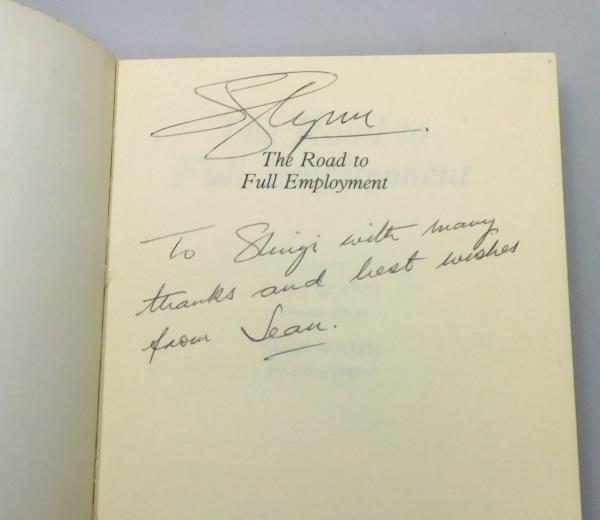 SGlynn.
The Road to
Full Employment
To with many
thanks and best wishes
from Sean.